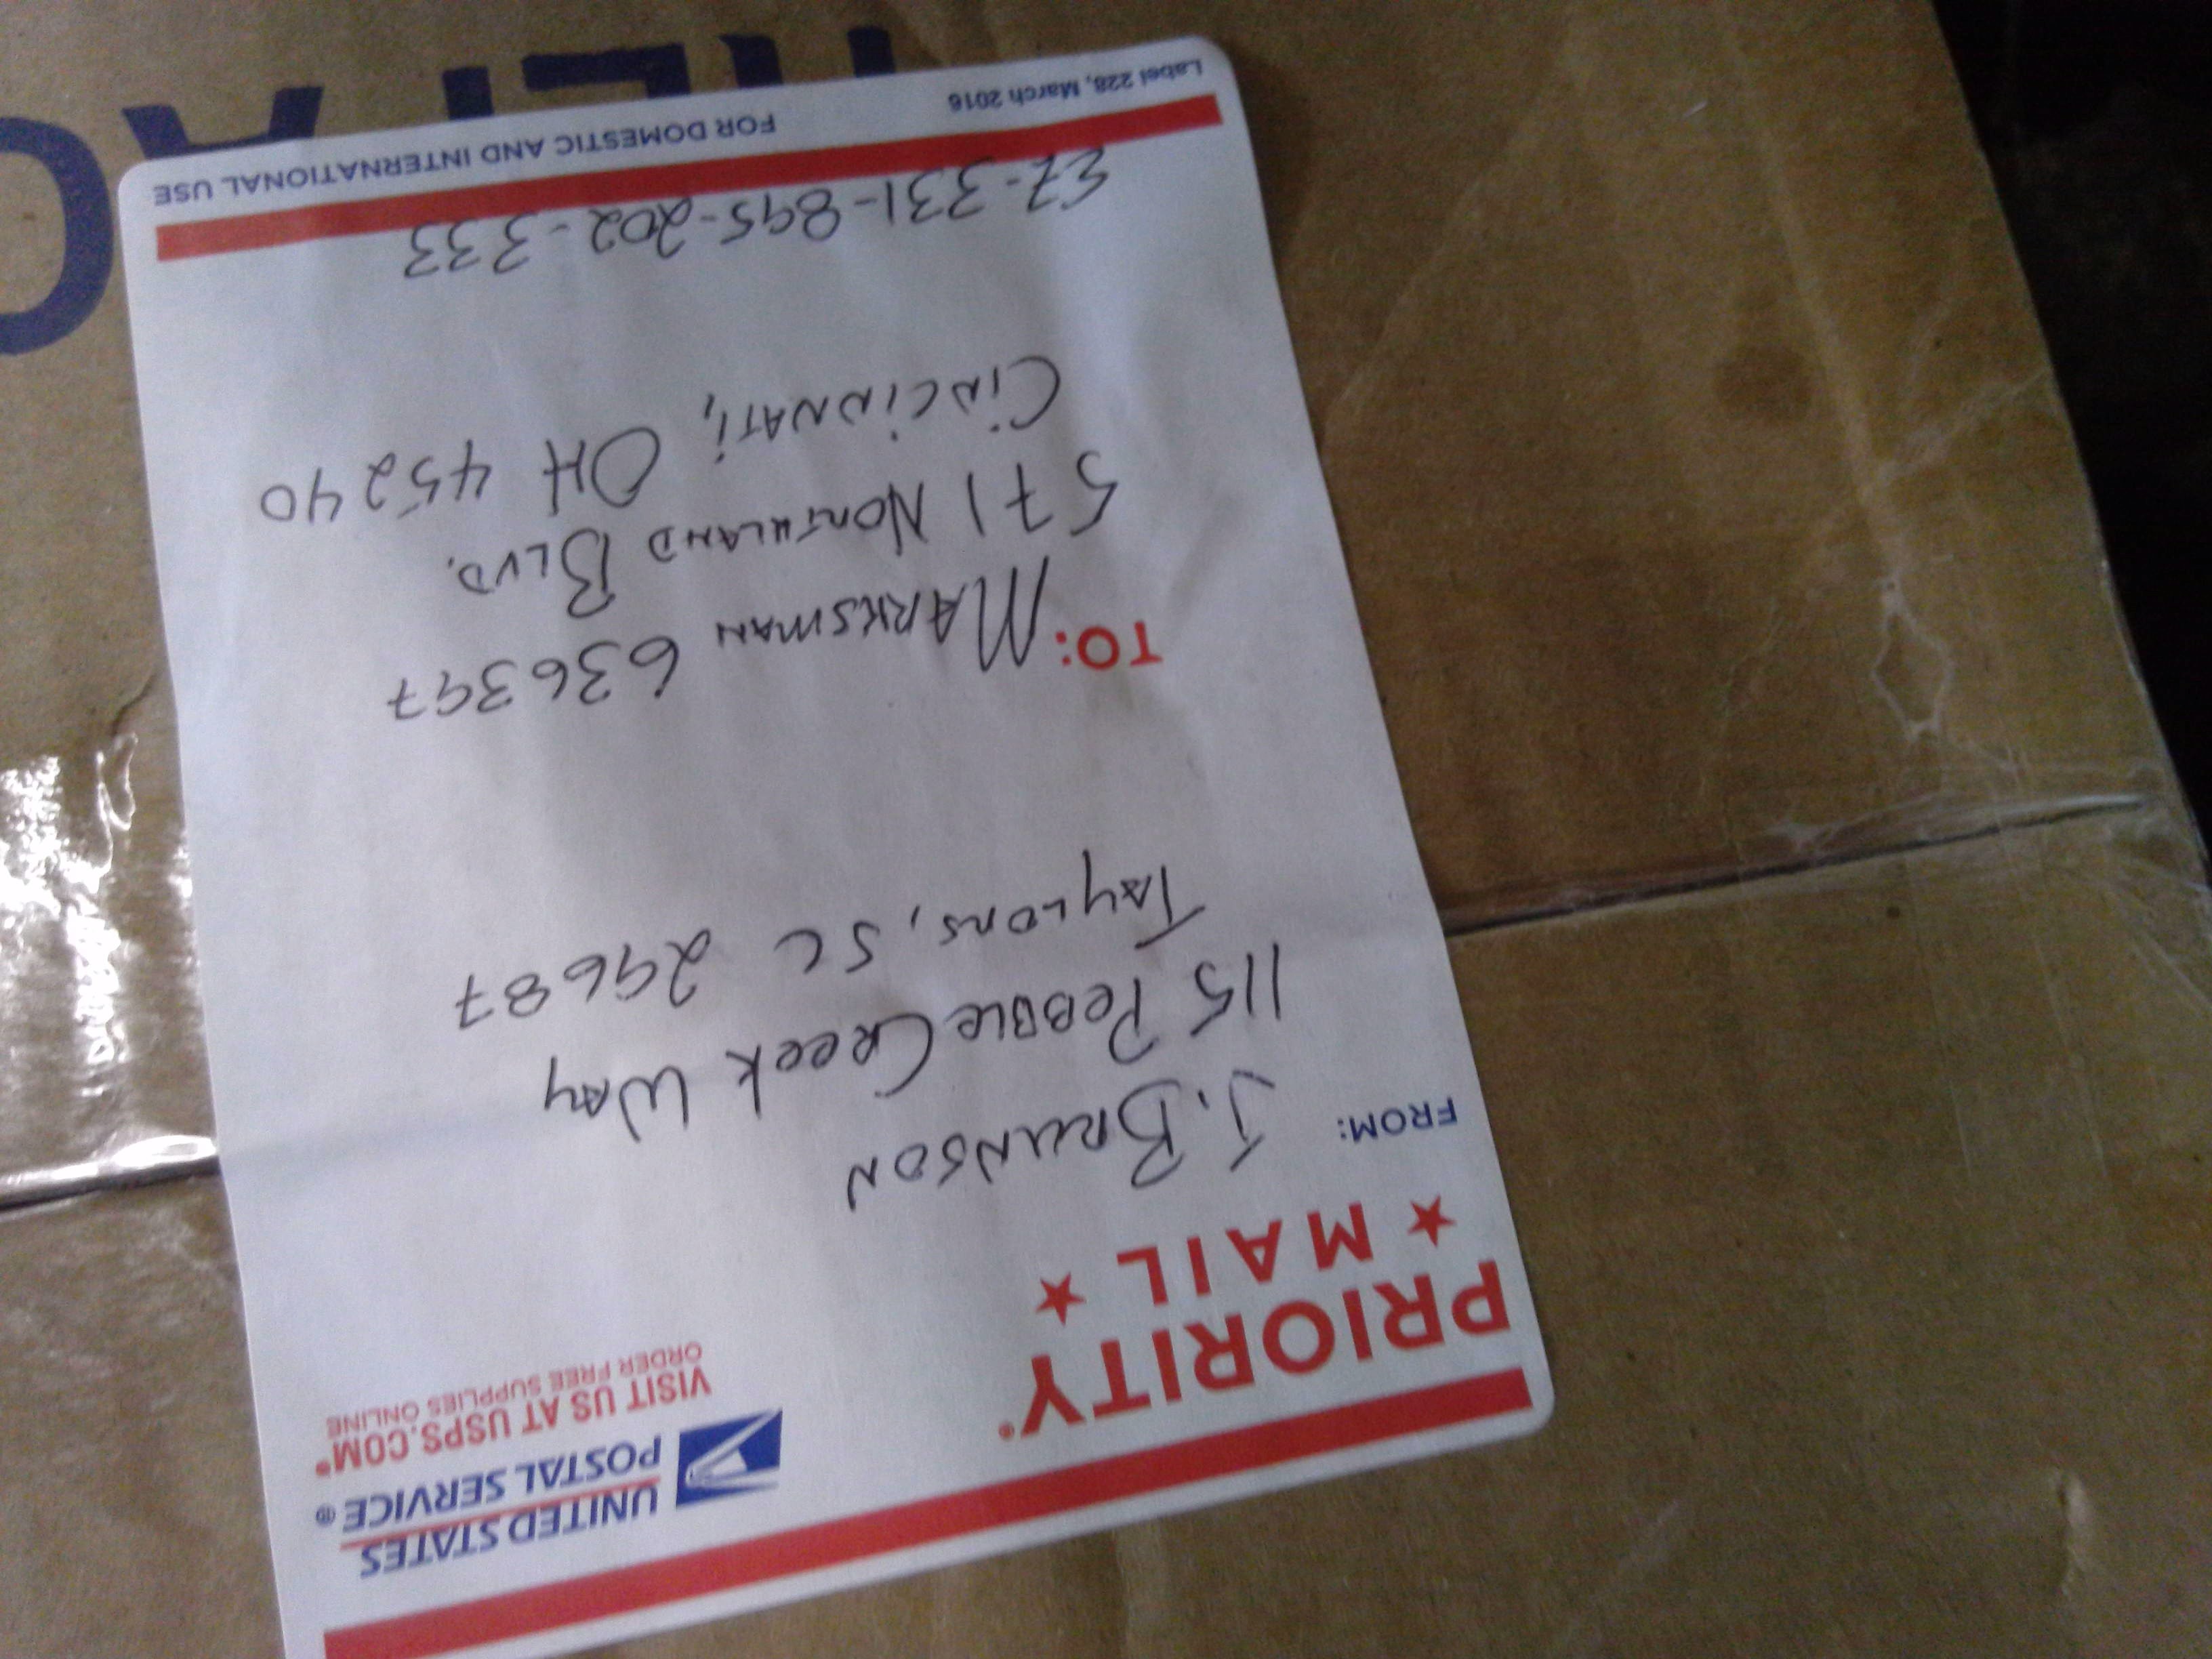 UNITED STATES
POSTAL SERVICE®
VISIT US AT USPS.COM®
ORDER FREE SUPPLIES ONLINE
PRIORITY®
★ MAIL ★
FROM: J. BRUNSON
115 Pebble Creek Way
TAYLORS, SC 29687
TO: MARKSMAN 636397
571 NORTHLAND BLVD.
CINCINNATI, OH 45240
EZ-331-895-202-333
Label 228, March 2016
FOR DOMESTIC AND INTERNATIONAL USE